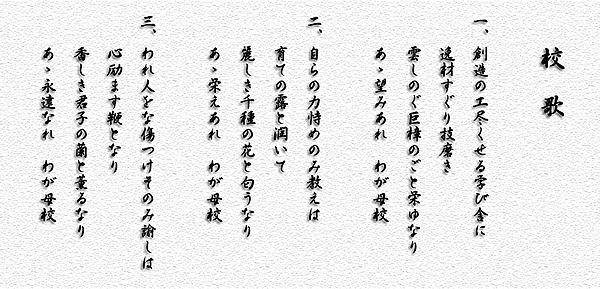 校歌
一、創造の工尽くせる学び舎に
逸材すぐり技磨き
雲しのぐ巨樟のごと栄ゆなり
あゝ望みあれ　わが母校
二、自らの力恃めのみ教えは
育ての露と潤いて
麗しき千種の花と匂うなり
あゝ栄えあれ　わが母校
三、われ人をな傷つけそのみ諭しは
心励ます鞭となり
香しき君子の蘭と薫るなり
あゝ永遠なれ　わが母校